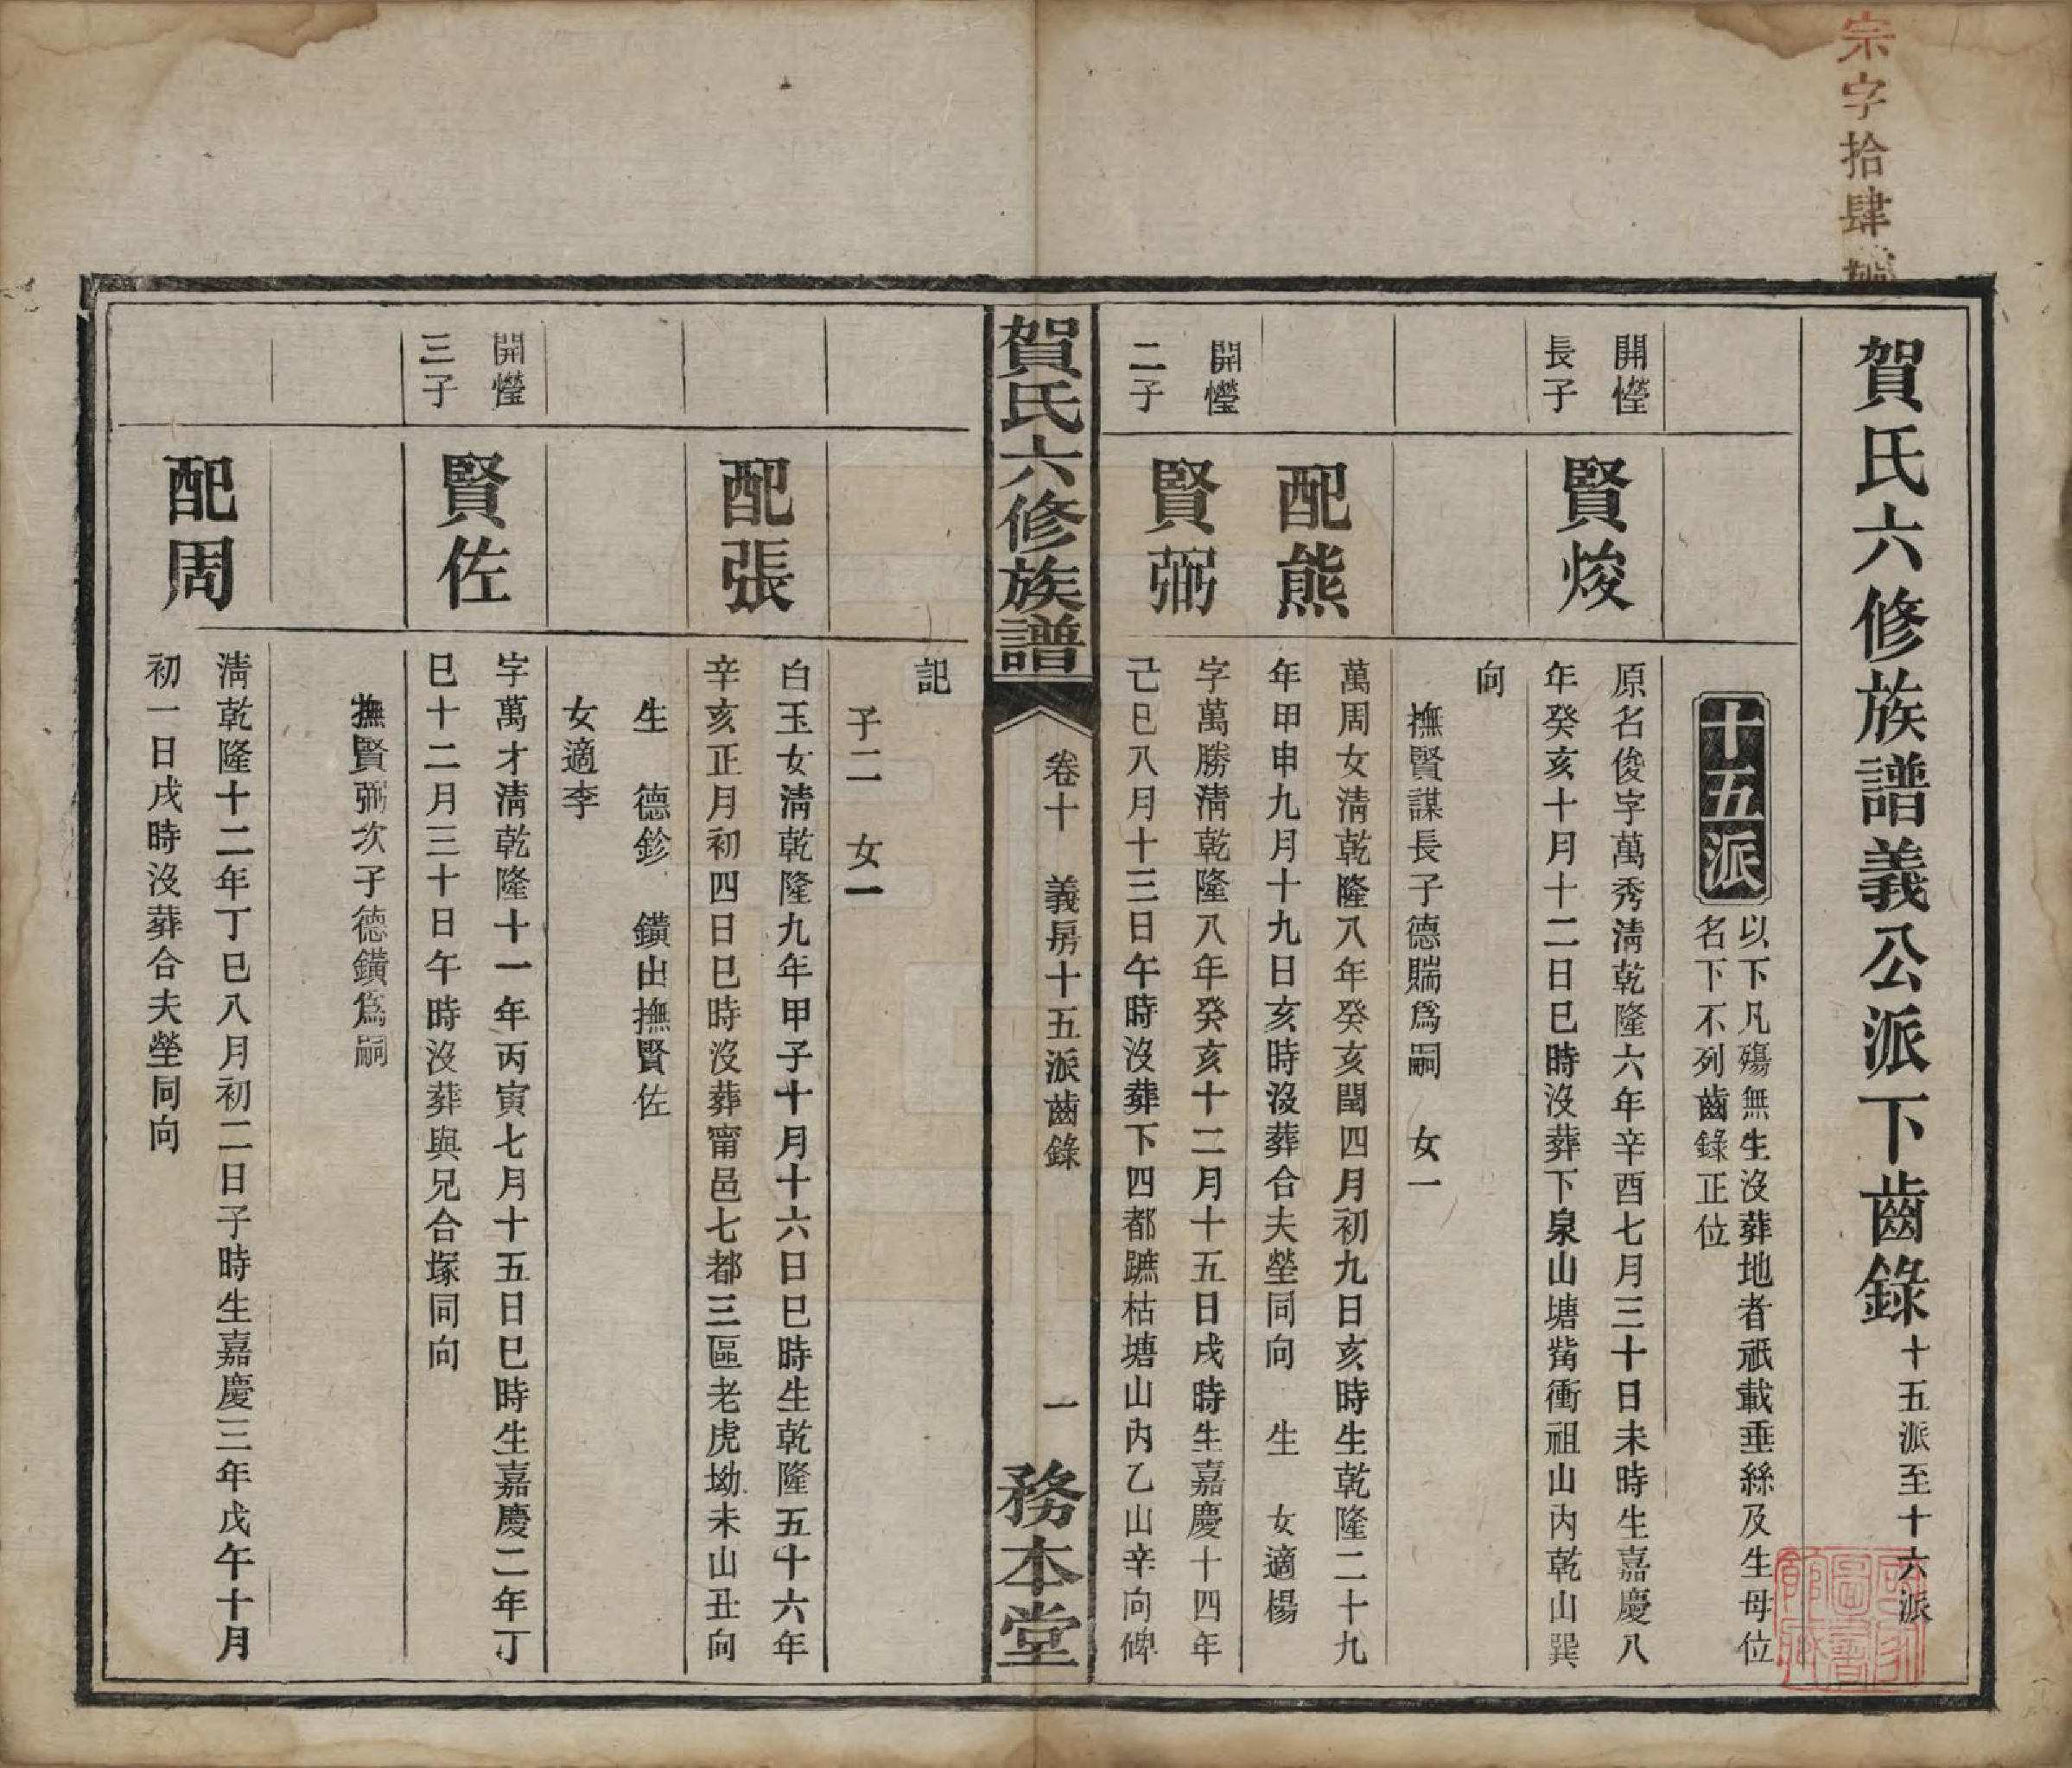 宗字拾肆號
賀氏六修族譜義公派下齒錄十五派至十六派
十五派
以下凡殤無生沒葬地者祇載垂絲及生母位
名下不列齒錄正位
開慛
長子
賢焌
原名俊字萬秀淸乾隆六年辛酉七月三十日未時生嘉慶八
年癸亥十月十二日巳時沒葬下泉山塘觜衝祖山內乾山巽
向
撫賢謀長子德䝙爲嗣 女一
配熊
萬周女淸乾隆八年癸亥閏四月初九日亥時生乾隆二十九
年甲申九月十九日亥時沒葬合夫塋同向 生 女適楊
開慛
二子
賢弼
字萬勝淸乾隆八年癸亥十二月十五日戌時生嘉慶十四年
己巳八月十三日午時沒葬下四都蹠枯塘山內乙山辛向碑
賀氏六修族譜
卷十 義房十五派齒錄
一
務本堂
記
子二 女一
配張
白玉女淸乾隆九年甲子十月十六日巳時生乾隆五十六年
辛亥正月初四日巳時沒葬甯邑七都三區老虎坳未山丑向
生 德鉁 鐄出撫賢佐
女適李
開慛
三子
賢佐
字萬才淸乾隆十一年丙寅七月十五日巳時生嘉慶二年丁
巳十二月三十日午時沒葬與兄合塚同向
撫賢弼次子德鐄爲嗣
配周
淸乾隆十二年丁巳八月初二日子時生嘉慶三年戊午十月
初一日戌時沒葬合夫塋同向